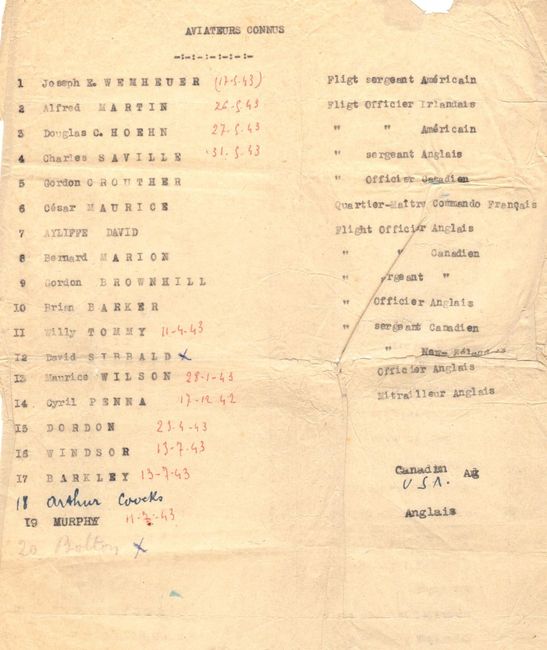 AVIATEURS CONNUS
-:-:-:-:-:-:-
1 Joseph E. WEMHEUER (17-5.43) Fligt sergeant Américain
2 Alfred MARTIN 26-5.43 Fligt Officier Irlandais
3 Douglas C. HOEHN 27.5.43 " " Américain
4 Charles SAVILLE 31.5.43 " sergeant Anglais
5 Gordon CROUTHER " Officier Canadien
6 César MAURICE Quartier-Maître Commando Français
7 AYLIFFE DAVID Flight Officier Anglais
8 Bernard MARION " " Canadien
9 Gordon BROWNHILL " ergeant "
10 Brian BARKER " Officier Anglais
11 Willy TOMMY 11-4-43 " sergeant Canadien
12 David SIBBALD x "
13 Maurice WILSON 28-1-43 Officier Anglais
14 Cyril PENNA 17-12 42 Mitrailleur Anglais
15 DORDON 23.4-43
16 WINDSOR 13-7-43
17 BARKLEY 13-7-43 Canadien
18 Arthur U.S.A.
19 MURPHY 43 Anglais
20 Bolton x